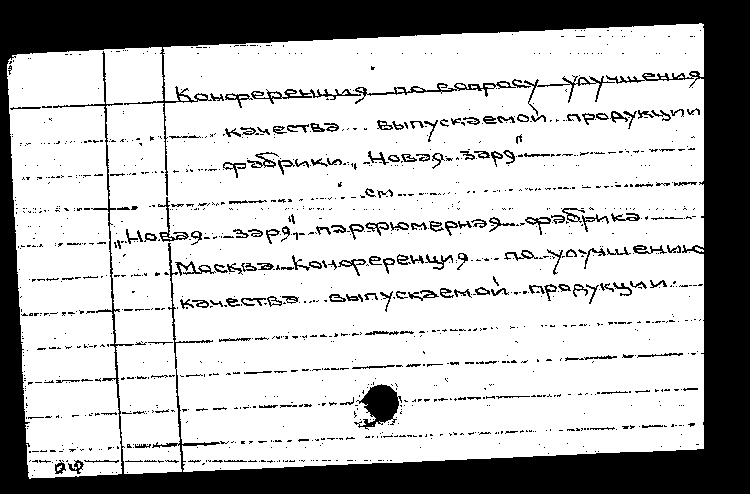 Конференция по вопросу улучшения
качества выпускаемой продукции
фабрики „Новая заря"
см
„Новая заря", парфюмерная фабрика.
Москва. Конференция по улучшению
качества выпускаемой продукции.